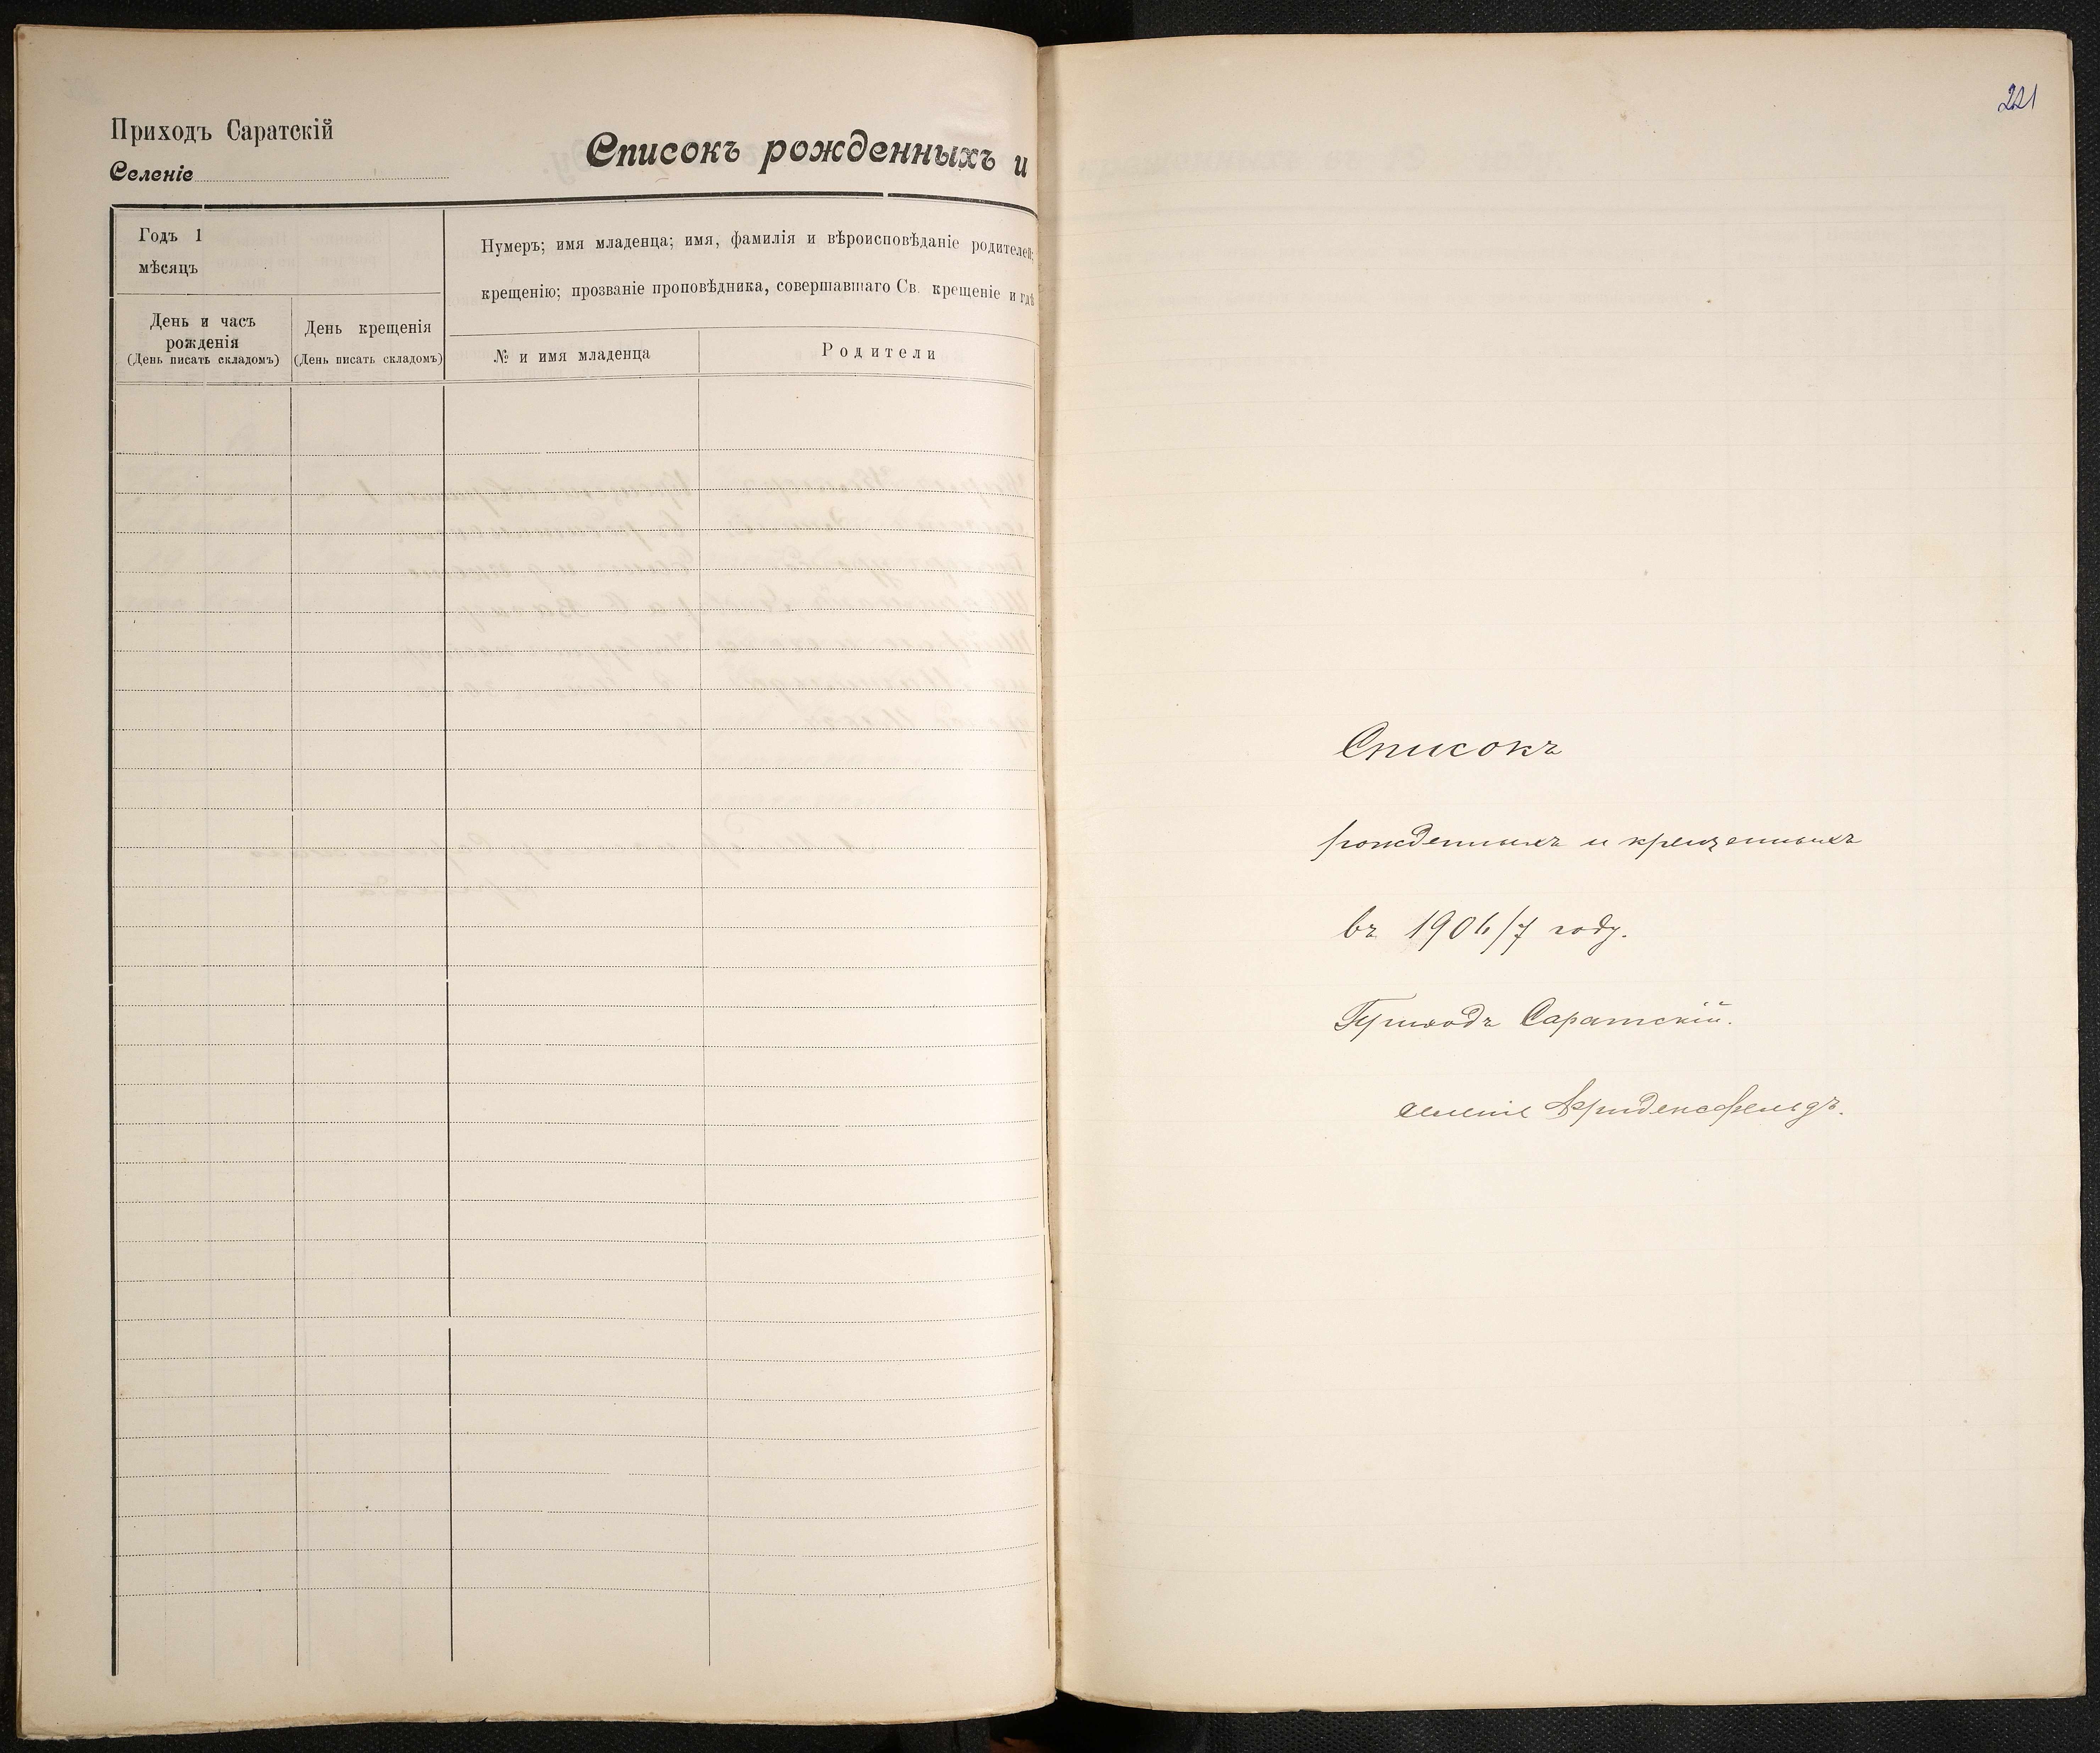 Приходъ Саратскій
Селеніе
Списокъ рожденныхъ и
Годъ 1
мѣсяцъ
Нумеръ; имя младенца; имя, фамилія и вѣроисповѣданіе родителей;
крещенію; прозваніе проповѣдника, совершавшаго Св. крещеніе и гдѣ
День и часъ
рожденія
(День писать складомъ)
День крещенія
(День писать складомъ)
№ и имя младенца
Родители
221
Списокъ
рожденныхъ и крещенныхъ
въ 1906/7 году.
Приходъ Саратскій.
селеніе Фриденсфельдъ.